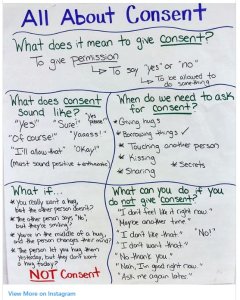 All About Consent
What does it mean to give consent?
To give permission
To say "yes" or "no"
To be allowed to
do something
What does consent
sound like?
"Yes!" "Sure!" "Yes please"
"Of course" "Yaasss!"
"I'll allow that" "Okay!"
(Must sound positive + enthusiastic)
When do we need to ask
for consent?
Giving hugs
Borrowing things ✓
Touching another person
Kissing
Sharing Secrets
What if...
You really want a hug,
but the other person doesn't?
The other person says "No",
but they're smiling?
You're in the middle of a hug
and the person changes their mind?
The person let you hug them
yesterday, but they don't want
a hug today?
NOT Consent
What can you do if you
do not give consent?
"I don't feel like it right now."
"Maybe another time"
"I don't like that." "No!"
"I don't want that."
"No thank you."
"Nah, I'm good right now."
"Ask me again later."
View More on Instagram